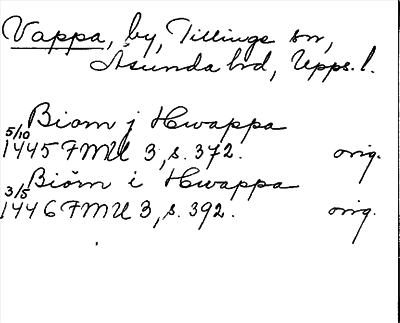 Vappa, by, Tillinge sn,
Åsunda hd, Upps. l.
Biorn j Hwappa
5/10 1445 FMU 3, s. 372. orig.
Biörn i Hwappa
3/5 1446 FMU 3, s. 392. orig.